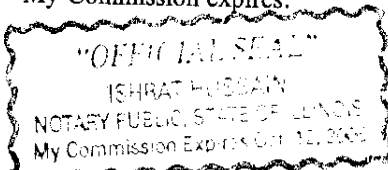 My Commission expires:
"OFFICIAL SEAL"
ISHRAT HUSSAIN
NOTARY PUBLIC, STATE OF ILLINOIS
My Commission Expires Oct. 12,